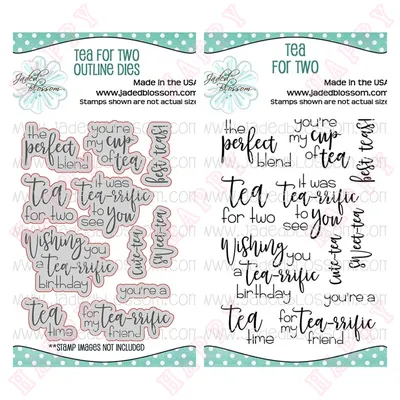 Jaded
Blossom
TEA FOR TWO
OUTLINE DIES
Made in the USA
www.jadedblossom.com
Stamps shown are not actual size
the
perfect
blend
you're
my cup
of tea
best teas!
tea
for two
it was
tea-rrific
to you
see
Wishing
you
a tea-rrific
birthday
cute-tea
sweet-tea
you're a
tea
time
for tea-rrific
my friend
**STAMP IMAGES NOT INCLUDED
Jaded
Blossom
TEA
FOR TWO
Made in the USA
www.jadedblossom.com
Stamps shown are not actual size
the
perfect
blend
you're
my cup
of tea
best teas!
tea
for two
it was
tea-rrific
to you
see
Wishing
you
a tea-rrific
birthday
cute-tea
sweet-tea
you're a
tea
time
for tea-rrific
my friend
www.jadedblossom.com
HAPPY